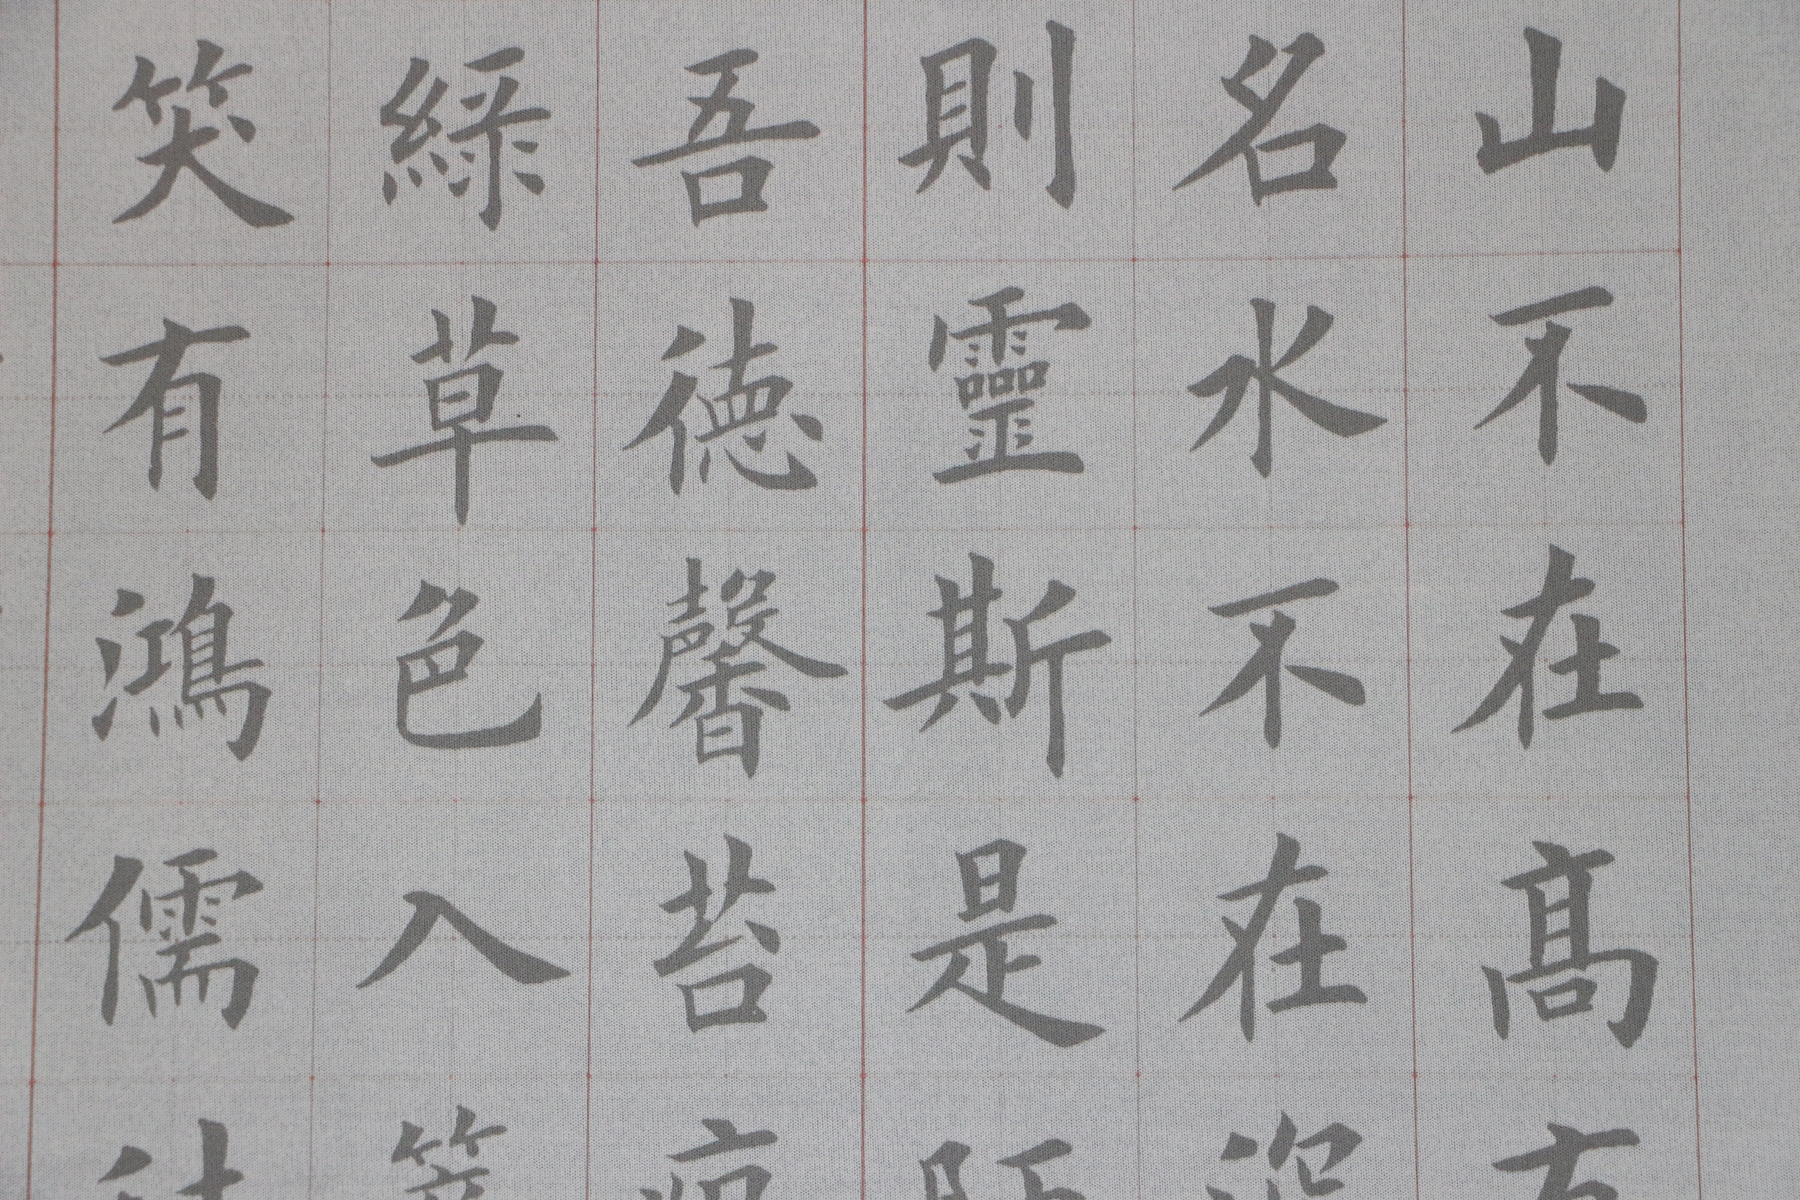 山不在髙
名水不在
則靈斯是
吾徳馨苔
綠草色入
笑有鴻儒